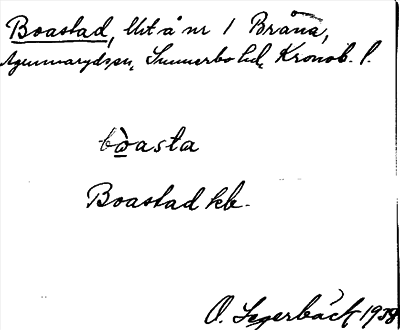 Boastad, lht å nr 1 Bråna,
Agunnarydspn, Sunnerbo hd, Kronob. l.
bòasta
Boastad kb.
O. Segerbäck 1938